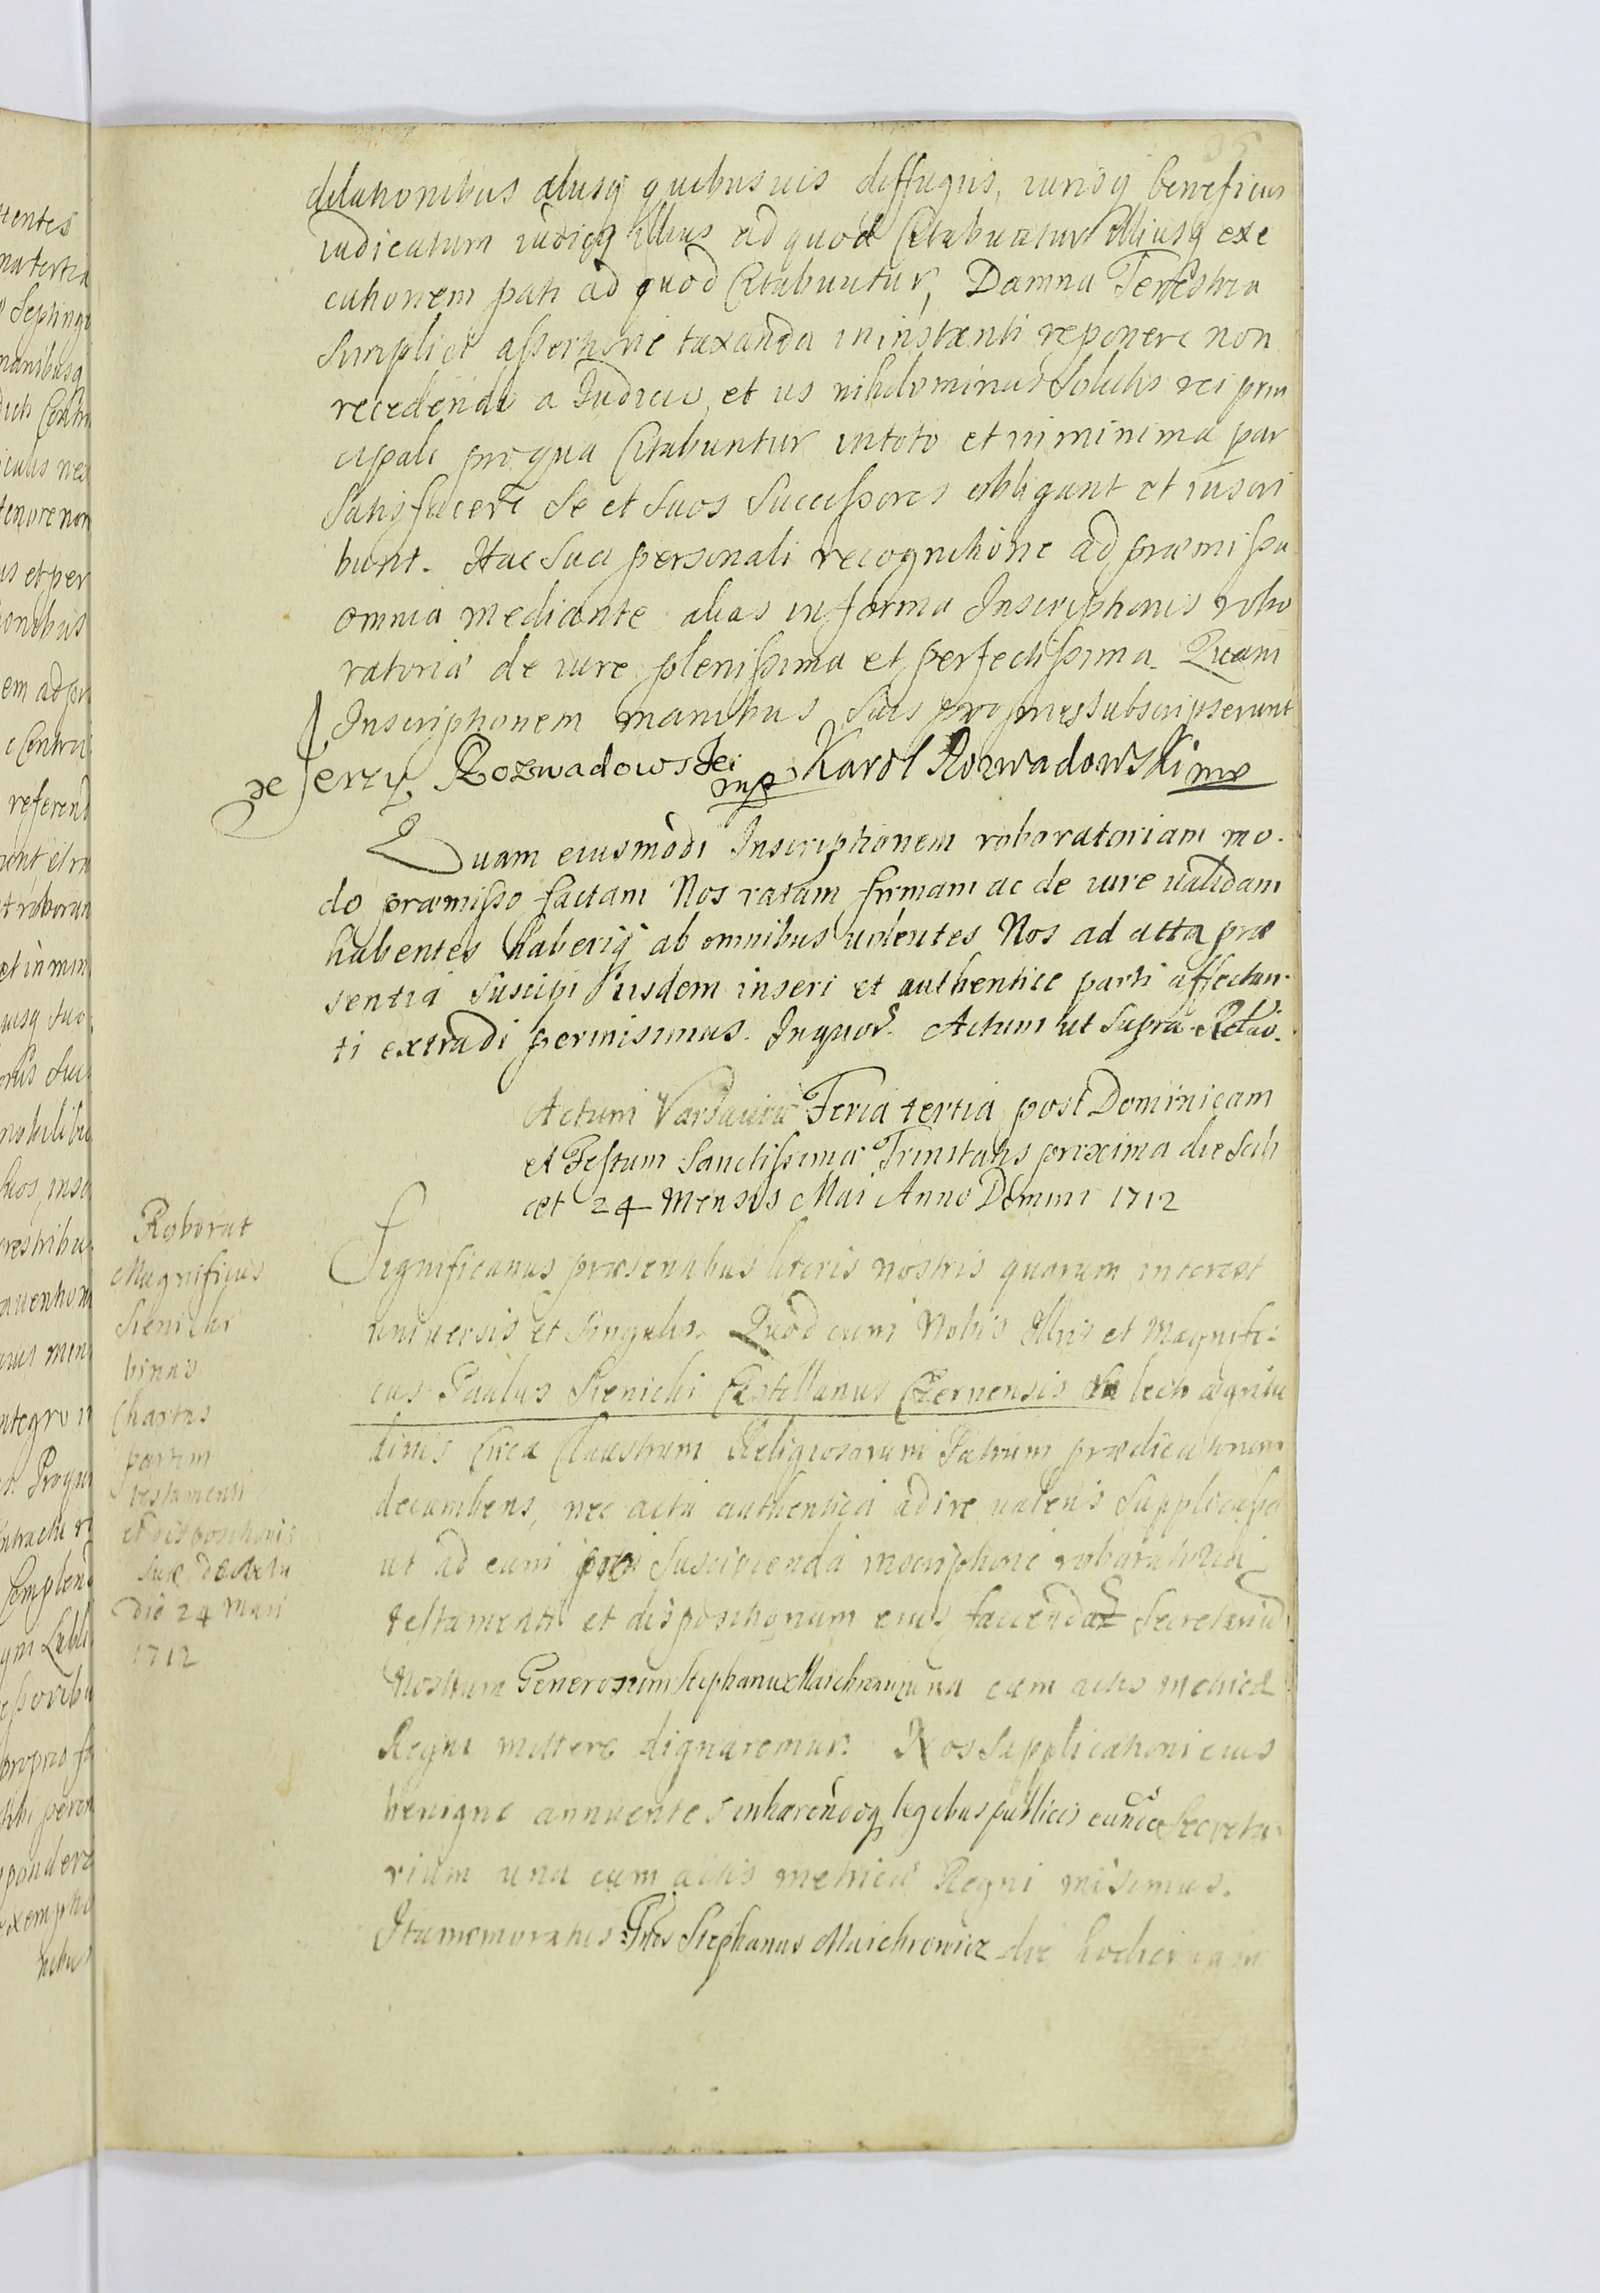 dilationibus aliisq quibusuis diffugiis, iurisq beneficiis
iudicatum iudiciiq illius ad quod Citabuntur illiusq exe
cutionem pati ad quod Citabuntur, Damna Terrestria
simplici assertione taxanda in instanti reponere non
recedendo a Iudicio, et iis nihilominus solutis rei prin
cipali pro qua Citabuntur in toto et in minima par
satisfacere se et suos successores obligant et inscri
bunt. Hac sua personali recognitione ad præmissa
omnia mediante alias in forma Inscriptionis robo
ratoriæ de iure plenissima et perfectissima. Quam
Inscriptionem manibus suis proprijs subscripserunt
Jerzy Rozwadowski mp Karol Rozwadowski mp
Quam eiusmodi Inscriptionem roboratoriam mo.
do præmisso factam Nos ratam firmam ac de iure validam
habentes haberiq ab omnibus volentes Nos ad acta præ
sentia suscipi iisdem inseri et authentice parti affectan.
ti extradi permisimus. In quor. Actum ut supra Relao.
Actum Varsaviæ Feria tertia post Dominicam
et Festum Sanctissimæ Trinitatis proxima die scili
cet 24 Mensis Mai Anno Domini 1712
Roborat
Magnificus
Sienicki
binas
Chartas
partim
testamenti
et dispositionis
suæ
die 24 Maii
1712
Significamus præsentibus literis nostris quorum interest
universis et singulis. Quod cum Nobis Illris et Magnifi:
cus Paulus Sienicki Castellanus Czernensis lecto ægritu
dinis circa Claustrum Religiosorum Patrum prædicatorum
decumbens, nec acta authentica adire valens supplicasset
ut ad eum pro suscipienda inscriptione roboratoria
testamenti et dispositionum eius facienda Secretariu
Nostrum Generosum Stephanu una cum actis metricæ
Regni mittere dignaremur. Nos supplicationi eius
benigne annuentes inhærendoq legibus publicis eundem Secreta
rium una cum actis metricæ Regni misimus.
Ita memoratus Gnos Stephanus Maichrowicz die hodierna in